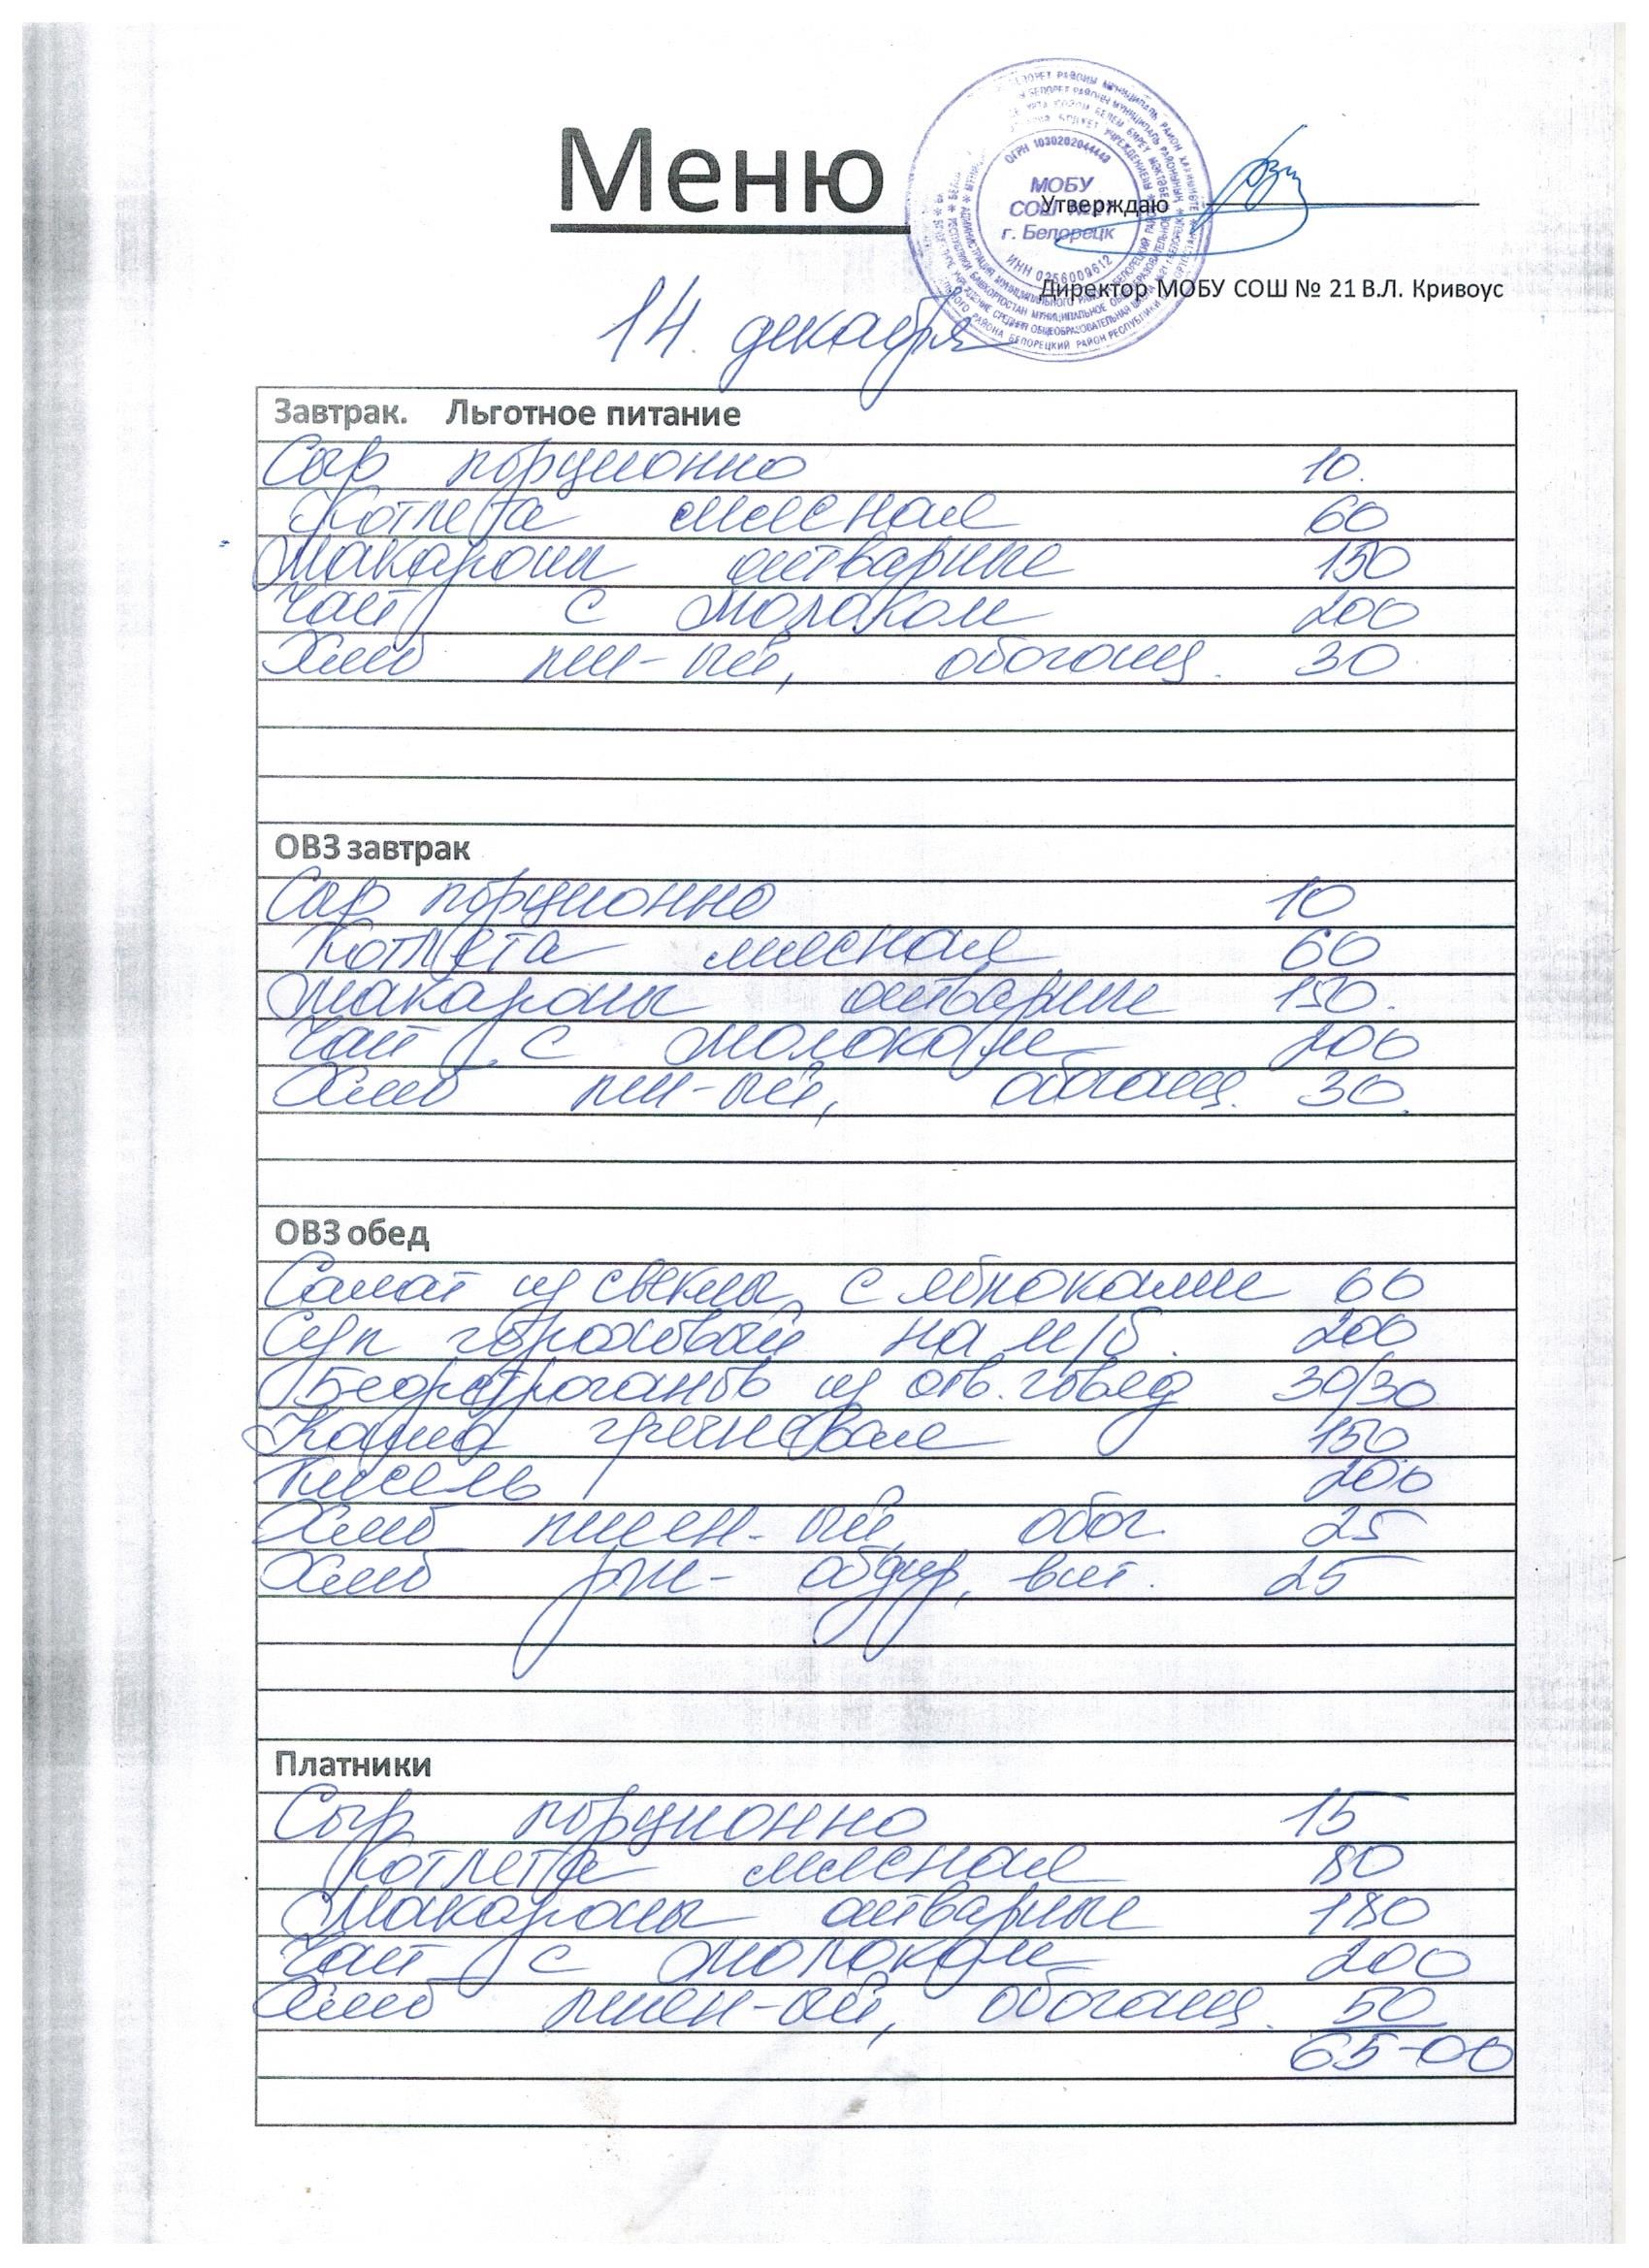 Меню
МОБУ
СОШ №21
г. Белорецк
ОГРН 1030202044440
ИНН 0256009612
Утверждаю
Директор МОБУ СОШ № 21 В.Л. Кривоус
14. декабря
Завтрак. Льготное питание
Сыр порционно 10.
Котлета мясная 60
Макароны отварные 150
Чай с молоком 200
Хлеб пш-ый, обогащ. 30
ОВЗ завтрак
Сыр порционно 10
Котлета мясная 60
Макароны отварные 150.
Чай с молоком 200
Хлеб пш-ый, обогащ. 30.
ОВЗ обед
Салат из свеклы с яблоками 60
Суп гороховый на м/б. 200
Бефстроганов из отв. говяд 30/30
Каша гречневая 150
Кисель 200
Хлеб пшен-ый, обог. 25
Хлеб рж- обдир, вит. 25
Платники
Сыр порционно 15
Котлета мясная 80
Макароны отварные 180
Чай с молоком 200
Хлеб пшен-ый, обогащ. 50
65-00